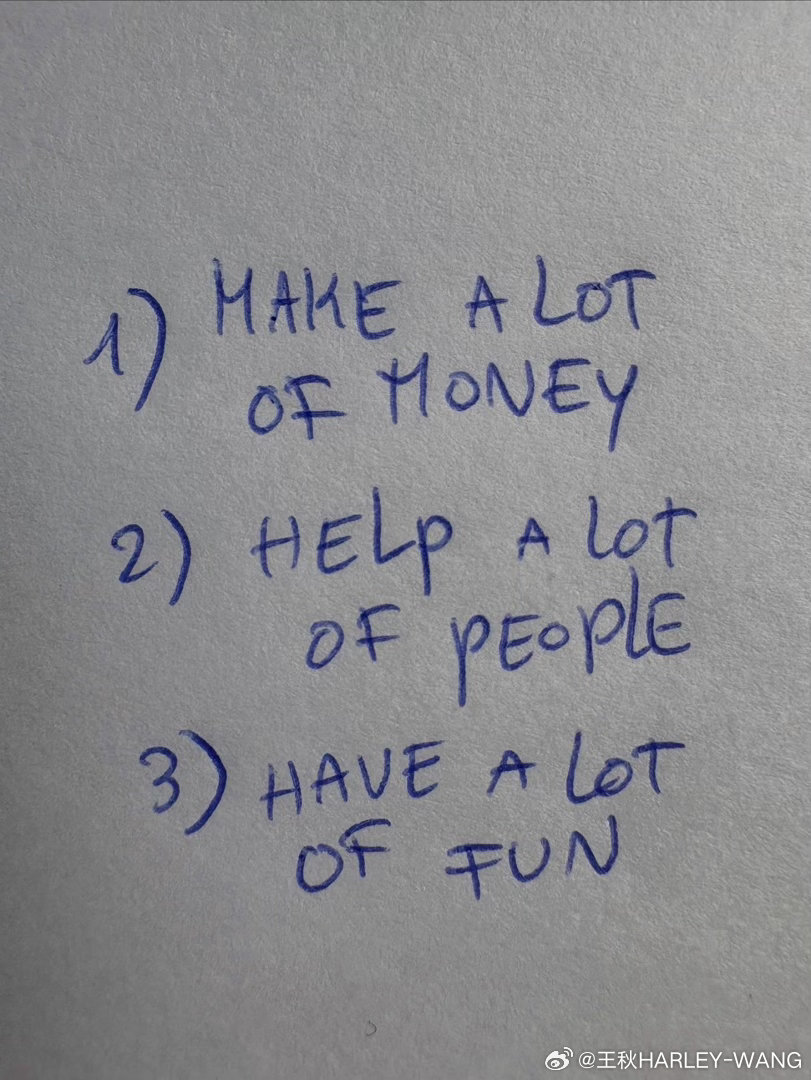 1) MAKE A LOT
OF MONEY
2) HELP A LOT
OF PEOPLE
3) HAVE A LOT
OF FUN
@王秋HARLEY-WANG